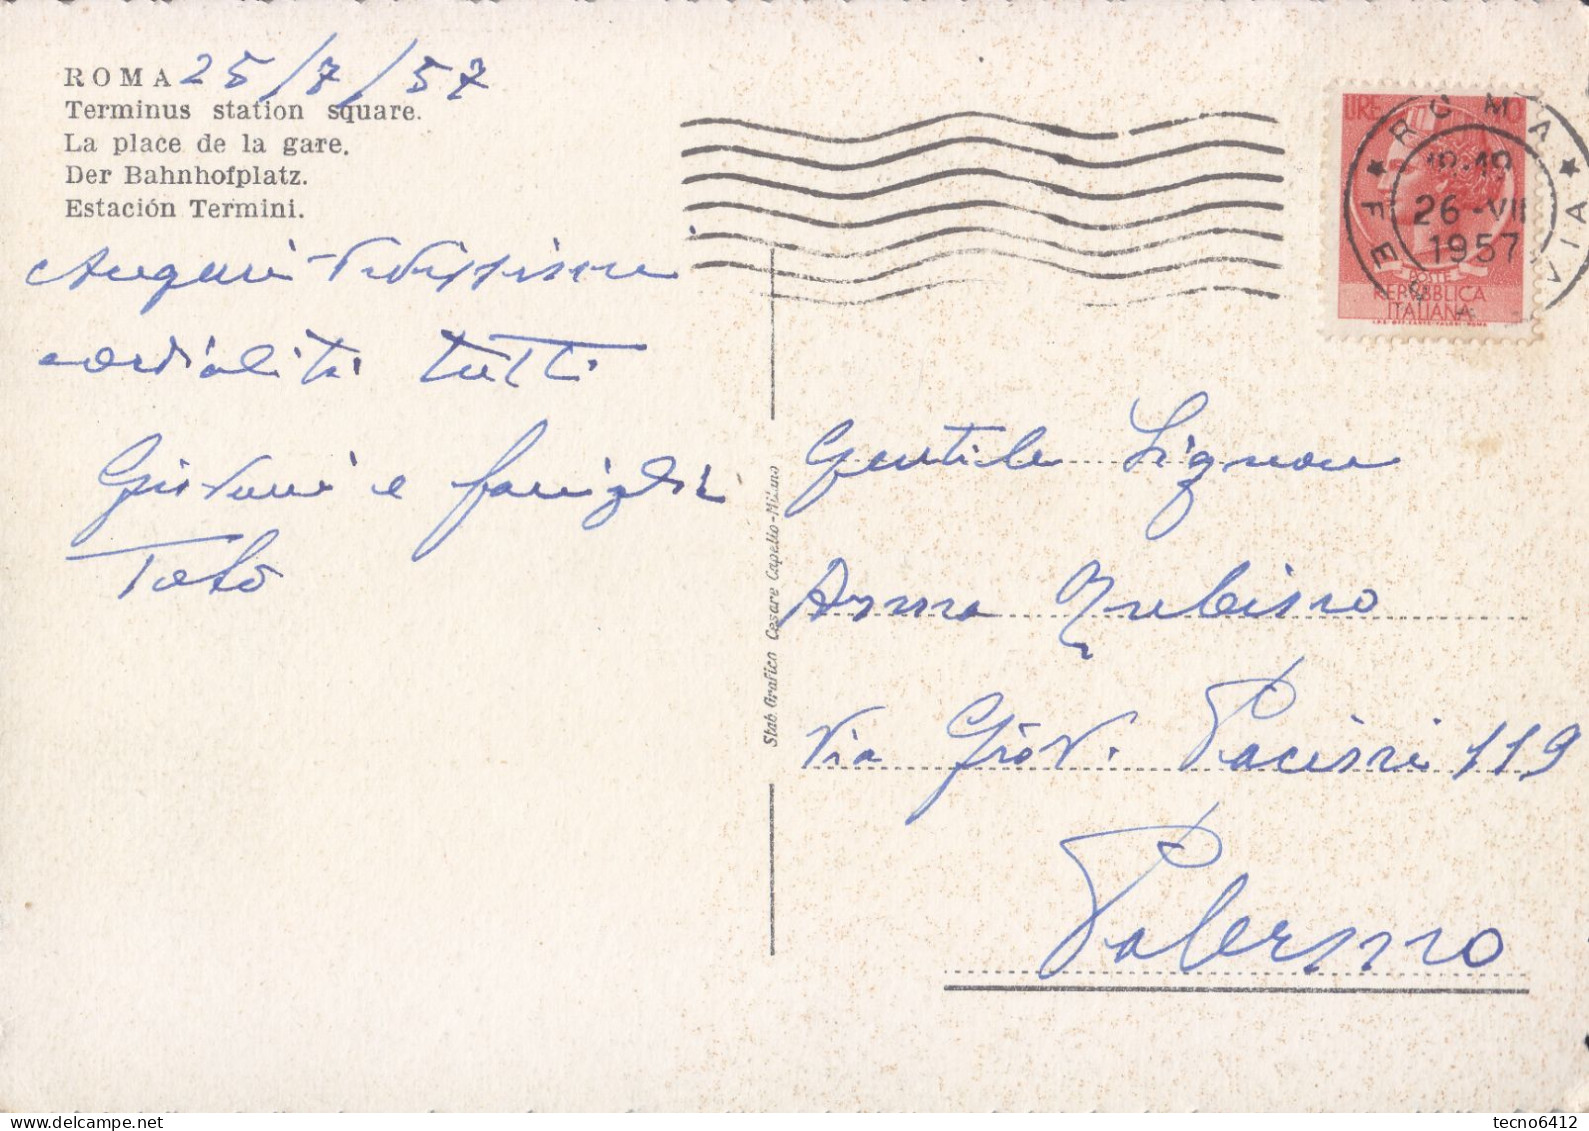 ROMA 25/7/57
Terminus station square.
La place de la gare.
Der Bahnhofplatz.
Estación Termini.
Auguri vivissimi
cordialità tutti
Giovanni e famiglia
Totò
Stab. Grafico Cesare Capello-Milano
LIRE 10
ROMA FERROVIA
18-19
26-VII
1957
POSTE
REPVBBLICA
ITALIANA
Gentile Signora
Anna Rubino
Via Giov. Pacini 119
Palermo
tecno6412